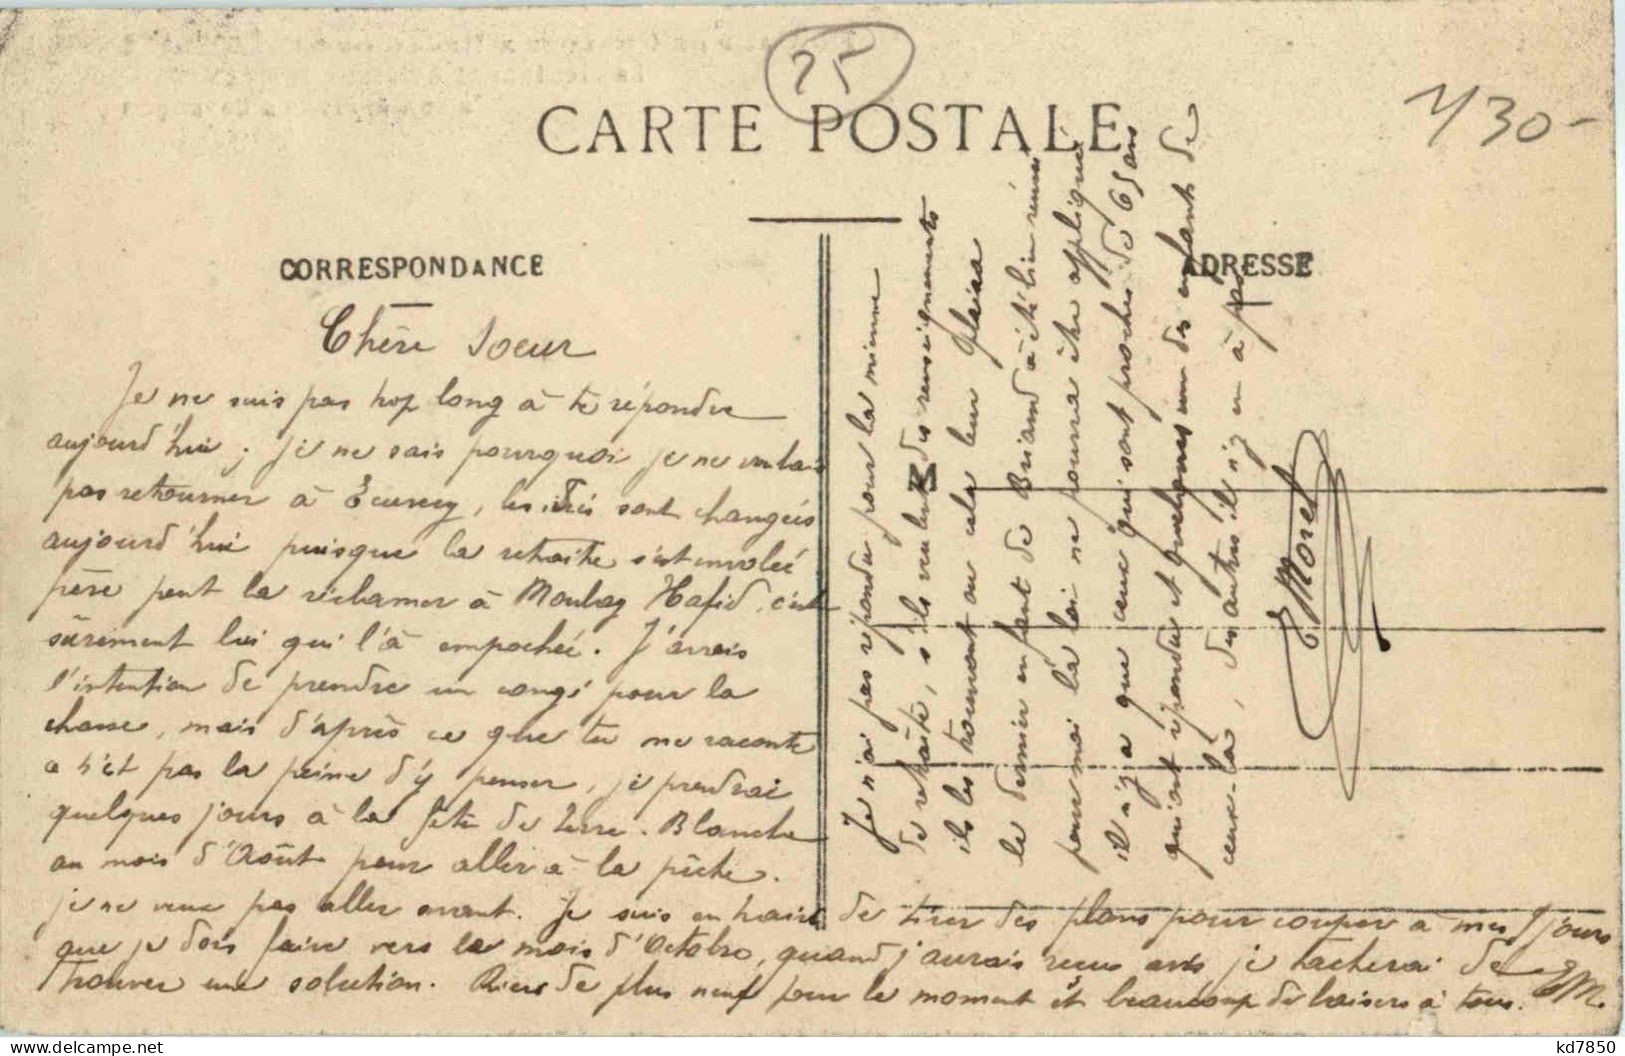 25
430-
CARTE POSTALE
CORRESPONDANCE
ADRESSE
Chère Soeur
Je ne suis pas trop long à te répondre
aujourd'hui ; je ne sais pourquoi je ne voulais
pas retourner à Ecurey, les idées sont changées
aujourd'hui puisque la retraite s'est envolée
père peut la réclamer à Moulay Hafid, c'est
sûrement lui qui l'à empochée. J'avais
l'intention de prendre un congé pour la
chasse, mais d'après ce que tu me raconte
ce n'est pas la peine d'y penser, je prendrai
quelques jours à la fête de Blanche
au mois d'Août pour aller à la pêche.
je ne veux pas aller avant. Je suis en train de tirer des plans pour couper à mes jours
que je dois faire vers le mois d'Octobre, quand j'aurais reçu avis je tacherai de
trouver une solution. Rien de plus neuf pour le moment et beaucoup de baisers à tous. EM.
Je n'ai pas répondu pour la mienne
de retraite, s'ils veulent des renseignements
ils les trouveront où cela leur plaira
le dernier enfant de Briand à été bien réussi
pour moi la loi ne pourra être appliqué
il n'y a que ceux qui sont proches de 65 ans
qui ont répondu et quelques uns des enfants de
ceux-là, des autres il n'y en à pas
M
E Moret
kd7850